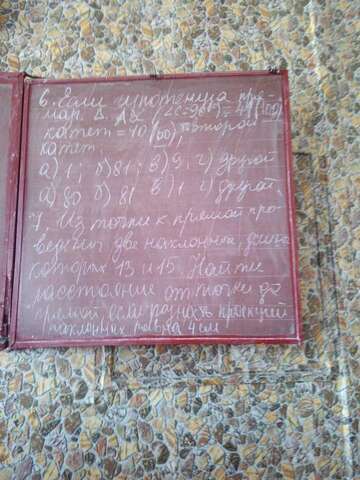 6. Если гипотенуза пря-
мар. Δ
катет = 10 второй
катет:
а) 1; б) 81; в) 9, г) другой
а) 80 б) 81 в) 1 г) другой.
7 Из точки к прямой про-
ведены две наклонные, длина
которых 13 и 15. Найти
расстояние от точки до
прямой, если разность проекций
наклонных равна 4 см